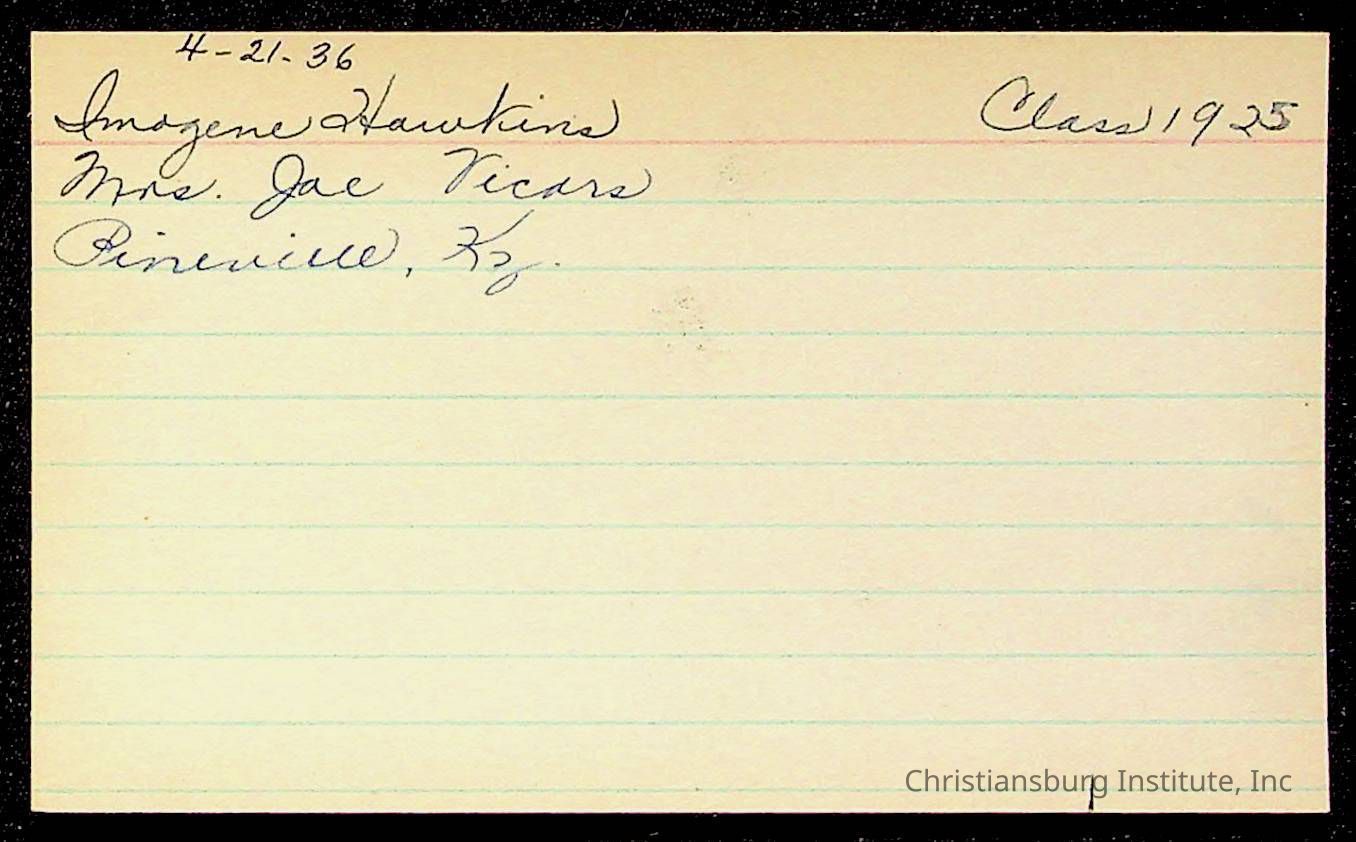 4-21-36
Imogene Hawkins Class 1925
Mrs. Joe Vicars
Pineville, Ky.
Christiansburg Institute, Inc